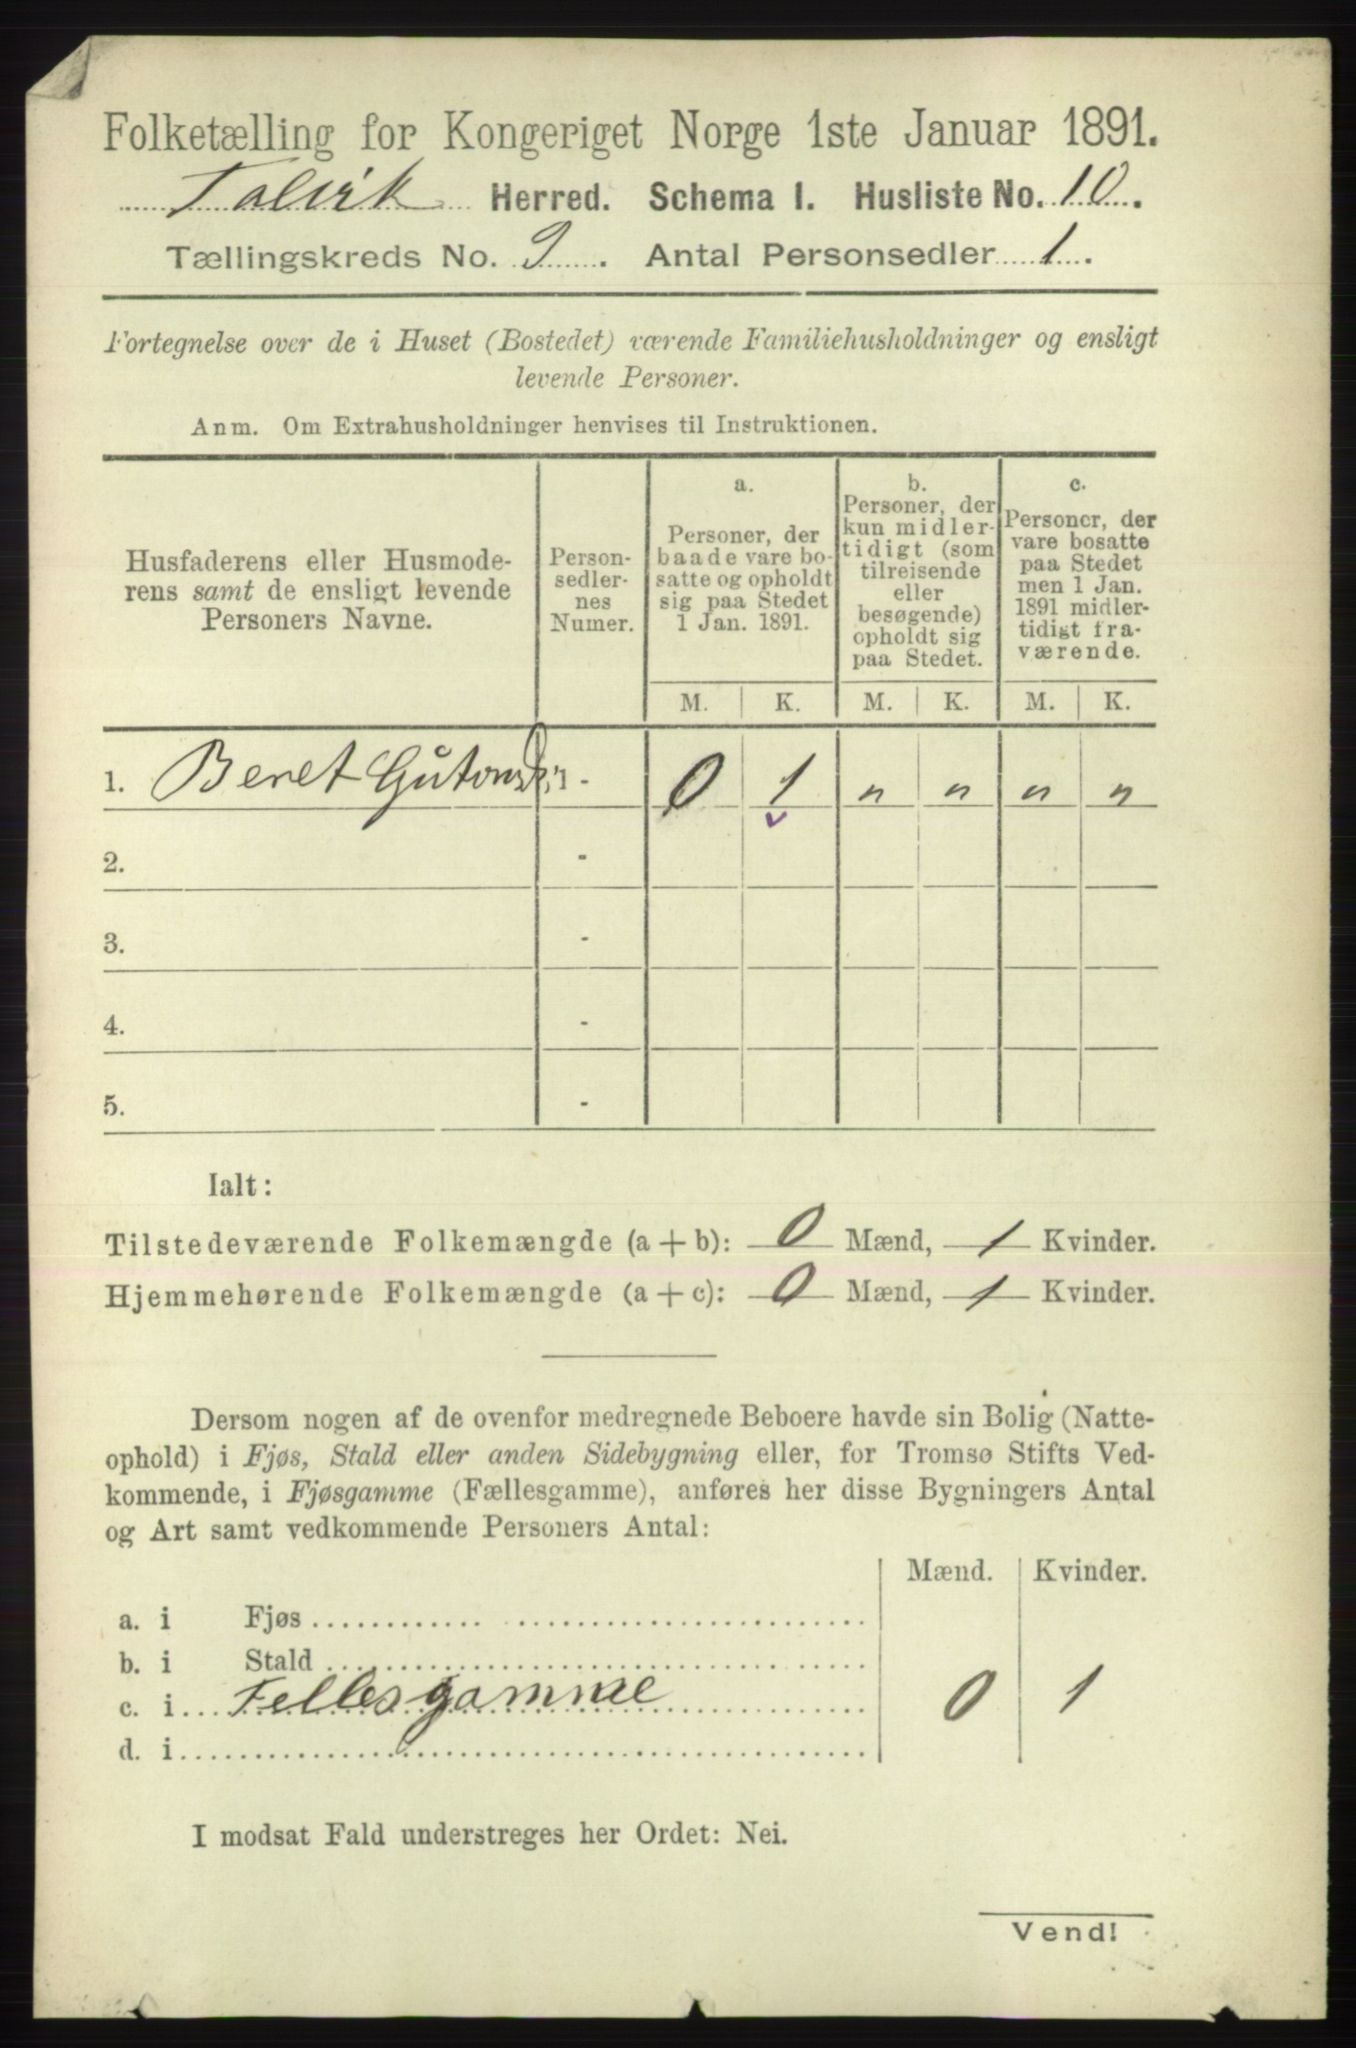 Folketælling for Kongeriget Norge 1ste Januar 1891.
Talvik Herred. Schema I. Husliste No. 10.
Tællingskreds No. 9. Antal Personsedler 1.
Fortegnelse over de i Huset (Bostedet) værende Familiehusholdninger og ensligt
levende Personer.
Anm. Om Extrahusholdninger henvises til Instruktionen.
Husfaderens eller Husmode-
rens samt de ensligt levende
Personers Navne.
Person-
sedler-
nes
Numer.
a.
Personer, der
baade vare bo-
satte og opholdt
sig paa Stedet
1 Jan. 1891.
b.
Personer, der
kun midler-
tidigt (som
tilreisende
eller
besøgende)
opholdt sig
paa Stedet.
c.
Personer, der
vare bosatte
paa Stedet
men 1 Jan.
1891 midler-
tidigt fra-
værende.
M. K. M. K. M. K.
1. Beret - 0 1 " " " "
2. -
3. -
4. -
5. -
Ialt:
Tilstedeværende Folkemængde (a + b): 0 Mænd, 1 Kvinder.
Hjemmehørende Folkemængde (a + c): 0 Mænd, 1 Kvinder.
Dersom nogen af de ovenfor medregnede Beboere havde sin Bolig (Natte-
ophold) i Fjøs, Stald eller anden Sidebygning eller, for Tromsø Stifts Ved-
kommende, i Fjøsgamme (Fællesgamme), anføres her disse Bygningers Antal
og Art samt vedkommende Personers Antal:
Mænd. Kvinder.
a. i Fjøs
b. i Stald
c. i Fellesgamme 0 1
d. i
I modsat Fald understreges her Ordet: Nei.
Vend!